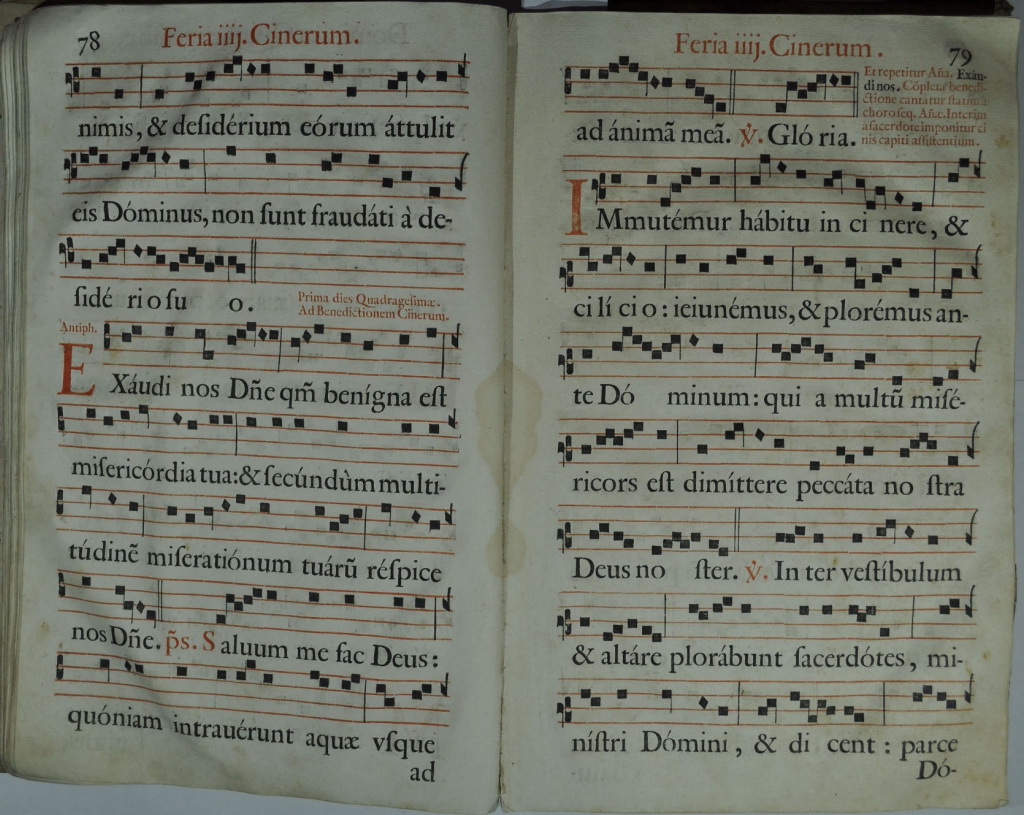 78
Feria iiij. Cinerum.
nimis, & deſidérium eórum áttulit
eis Dóminus, non ſunt fraudáti à de-
ſidé rio ſu o.
Prima dies Quadrageſimæ.
Ad Benedictionem Cinerum.
Antiph.
EXáudi nos Dñe qm̃ benígna eſt
miſericórdia tua: & ſecúndùm multi-
túdinẽ miſeratiónum tuárũ réſpice
nos Dñe. p̃s. Saluum me fac Deus:
quóniam intrauérunt aquæ vſque
ad
Feria iiij. Cinerum.
79
ad ánimã meã. ℣. Gló ria.
Et repetitur Aña. Exáu-
di nos. Cõpleta benedi-
ctione cantatur ſtatim à
choro ſeq. Aña. Interim
a ſacerdote imponitur ci
nis capiti aſſiſtentium.
IMmutémur hábitu in ci nere, &
ci lí ci o: ieiunémus, & plorémus an-
te Dó minum: qui a multũ miſé-
ricors eſt dimíttere peccáta no ſtra
Deus no ſter. ℣. In ter veſtíbulum
& altáre plorábunt ſacerdótes, mi-
níſtri Dómini, & di cent: parce
Dó-